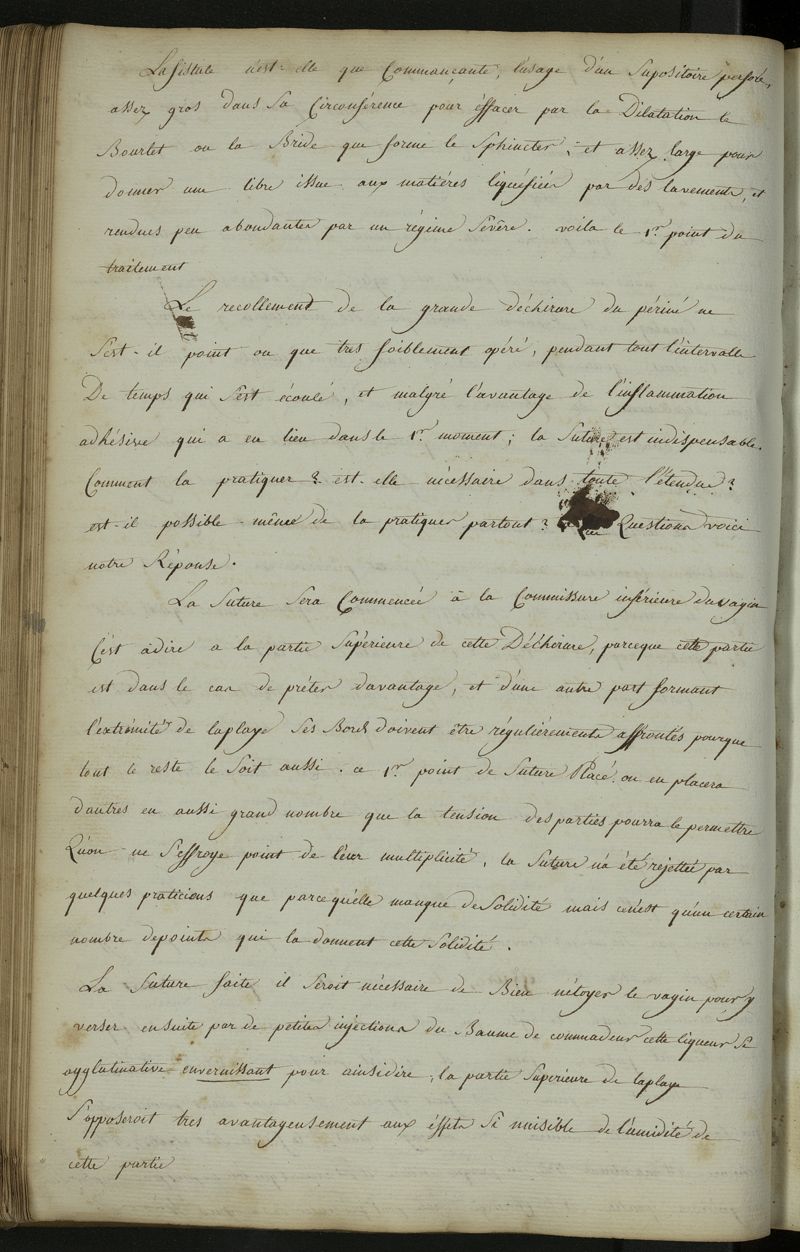 La fistule n'est-elle que Commançante, l'usage d'un Supositoire perforé,
assez gros dans sa Circonférence pour éffacer par la Dilatation le
Bourlet ou la Bride que forme le Sphincter, et assez large pour
donner une libre issue aux matiéres liquéfiées par des lavements, et
rendues peu abondantes par un régime Sévêre. voila le 1er point du
traitement
Le recollement de la grande déchirure du périné ne
s'est-il point ou que tres foiblement opéré, pendant tout l'intervalle
De temps qui s'est écoulé, et malgré l'avantage de l'inflammation
adhésive qui a eu lieu dans le 1er moment; la Suture est indispensable.
Comment la pratiquer? est-elle nécessaire dans toute l'étendue?
est-il possible même de la pratiquer partout? Questions voici
notre Réponse.
La Suture Sera Commencée à la Commissure inférieure du vagin
C'est àdire a la partie Supérieure de cette Déchirure, parceque cette partie
est dans le cas de préter davantage, et d'une autre part formant
l'extrémité de laplaye Ses Bords doivent être réguliérements affrontés pourque
tout le reste le Soit aussi. ce 1er point de Suture Placé. on en placera
d'autres en aussi grand nombre que la tension desparties pourra le permettre
Qu'on ne S'effroye point de leur multiplicité, la Suture n'a été rejettée par
quelques praticiens que parcequ'elle manque deSolidité mais cen'est qu'un certain
nombre depoints qui la donnent cette Solidité.
La Suture faite il Seroit nécessaire de Bien nétoyer le vagin pour y
verser ensuite par de petites injections du Baume de commadeur cette liqueur Si
agglutinative envernissant pour ainsidire, la partie Superieure de laplaye
S'opposeroit tres avantageusement aux éffets Si nuisible de l'umidité de
cette partie